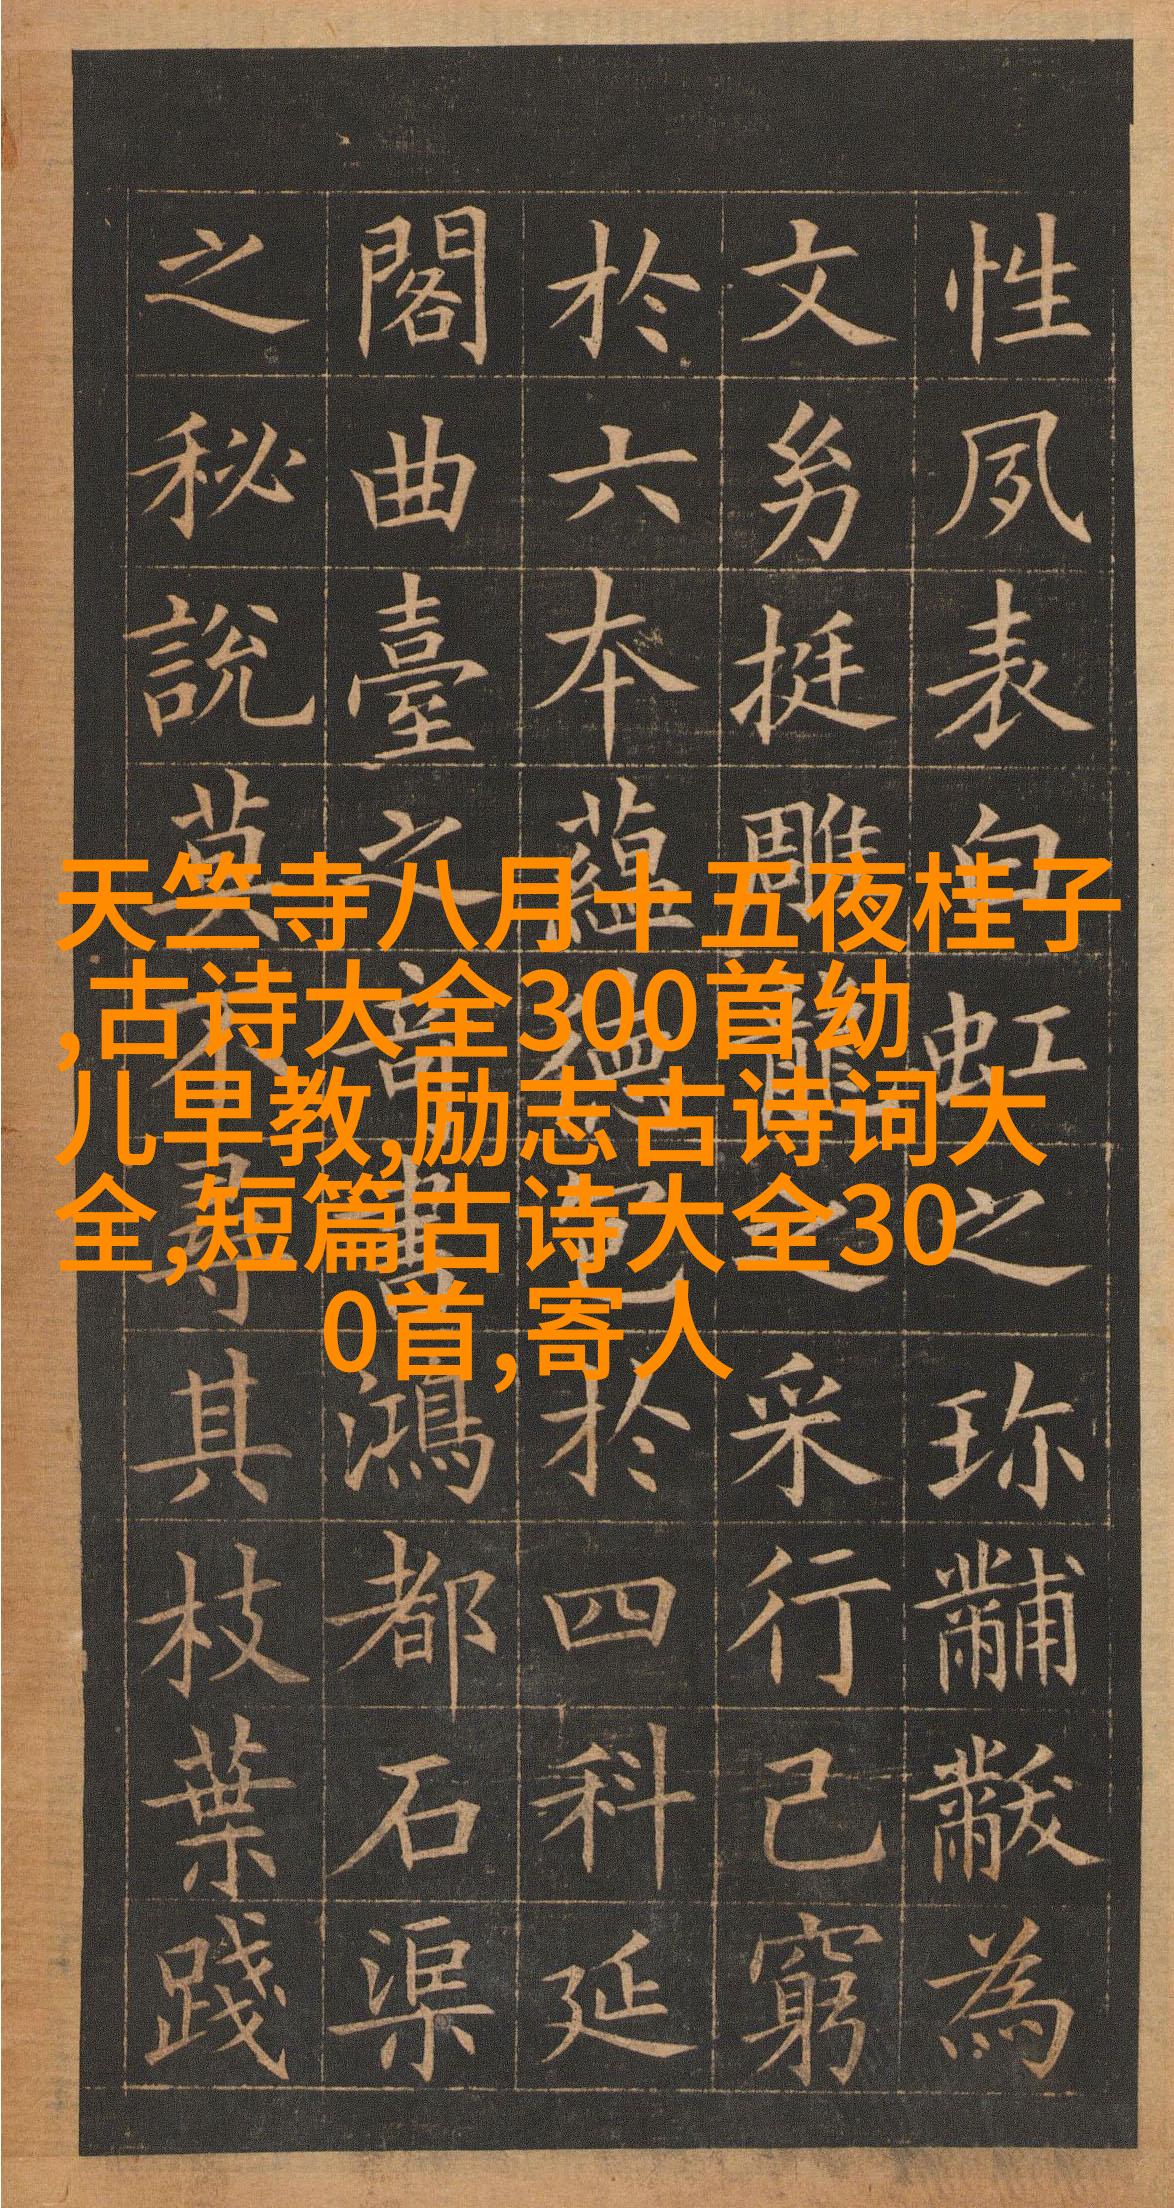 性夙表白虹之珍黼黻為
文幼挺雕龍之采行己窮
於六本蘊德包於四科延
閣曲臺之奇書鴻都石渠
之秘說莫不尋其枝葉踐
天竺寺八月十五夜桂子
,古诗大全300首幼
儿早教,励志古诗词大
全,短篇古诗大全30
0首,寄人